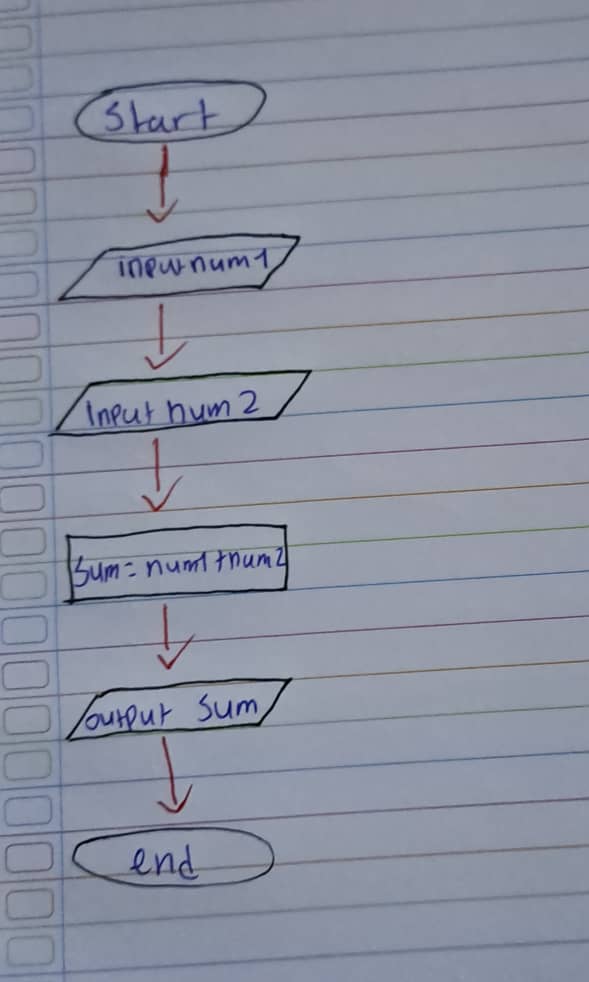 Start
input num1
Input num 2
Sum = num1 + num2
output Sum
end